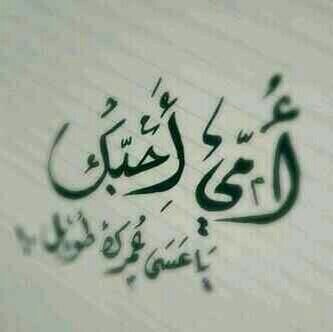 أُمّي أُحبّك
يَا عَسَى عُمرك طُويل !!